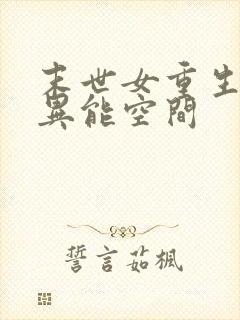 末世女重生
異能空間
誓言茹楓